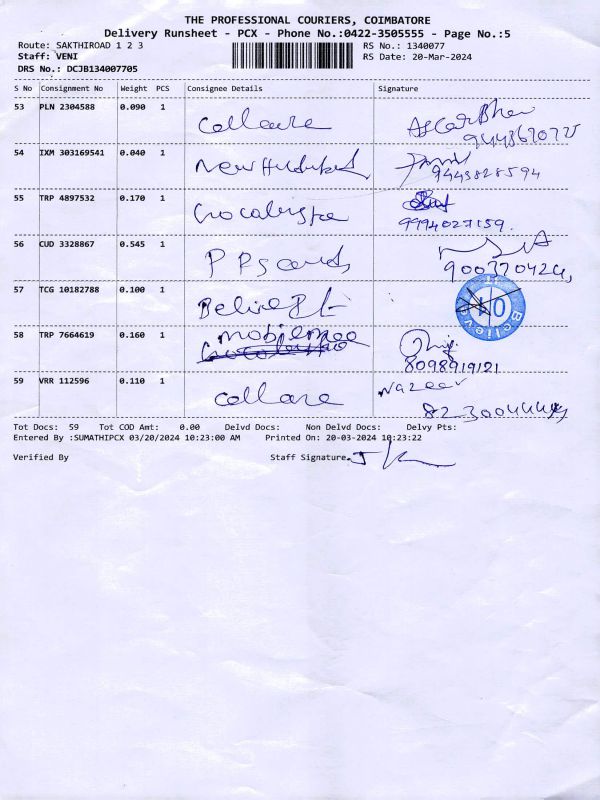 THE PROFESSIONAL COURIERS, COIMBATORE
Delivery Runsheet - PCX - Phone No.:0422-3505555 - Page No.:5
Route: SAKTHIROAD 1 2 3 RS No.: 1340077
Staff: VENI RS Date: 20-Mar-2024
DRS No.: DCJB134007705
S No Consignment No Weight PCS Consignee Details Signature
53 PLN 2304588 0.090 1
54 IXM 303169541 0.040 1 9443828594
55 TRP 4897532 0.170 1 9994027159.
56 CUD 3328867 0.545 1 P P S cards
57 TCG 10182788 0.100 1 Believe
58 TRP 7664619 0.160 1 mobilemoo 8098919121
59 VRR 112596 0.110 1 collare Nazeer
Tot Docs: 59 Tot COD Amt: 0.00 Delvd Docs: Non Delvd Docs: Delvy Pts:
Entered By :SUMATHIPCX 03/20/2024 10:23:00 AM Printed On: 20-03-2024 10:23:22
Verified By Staff Signature